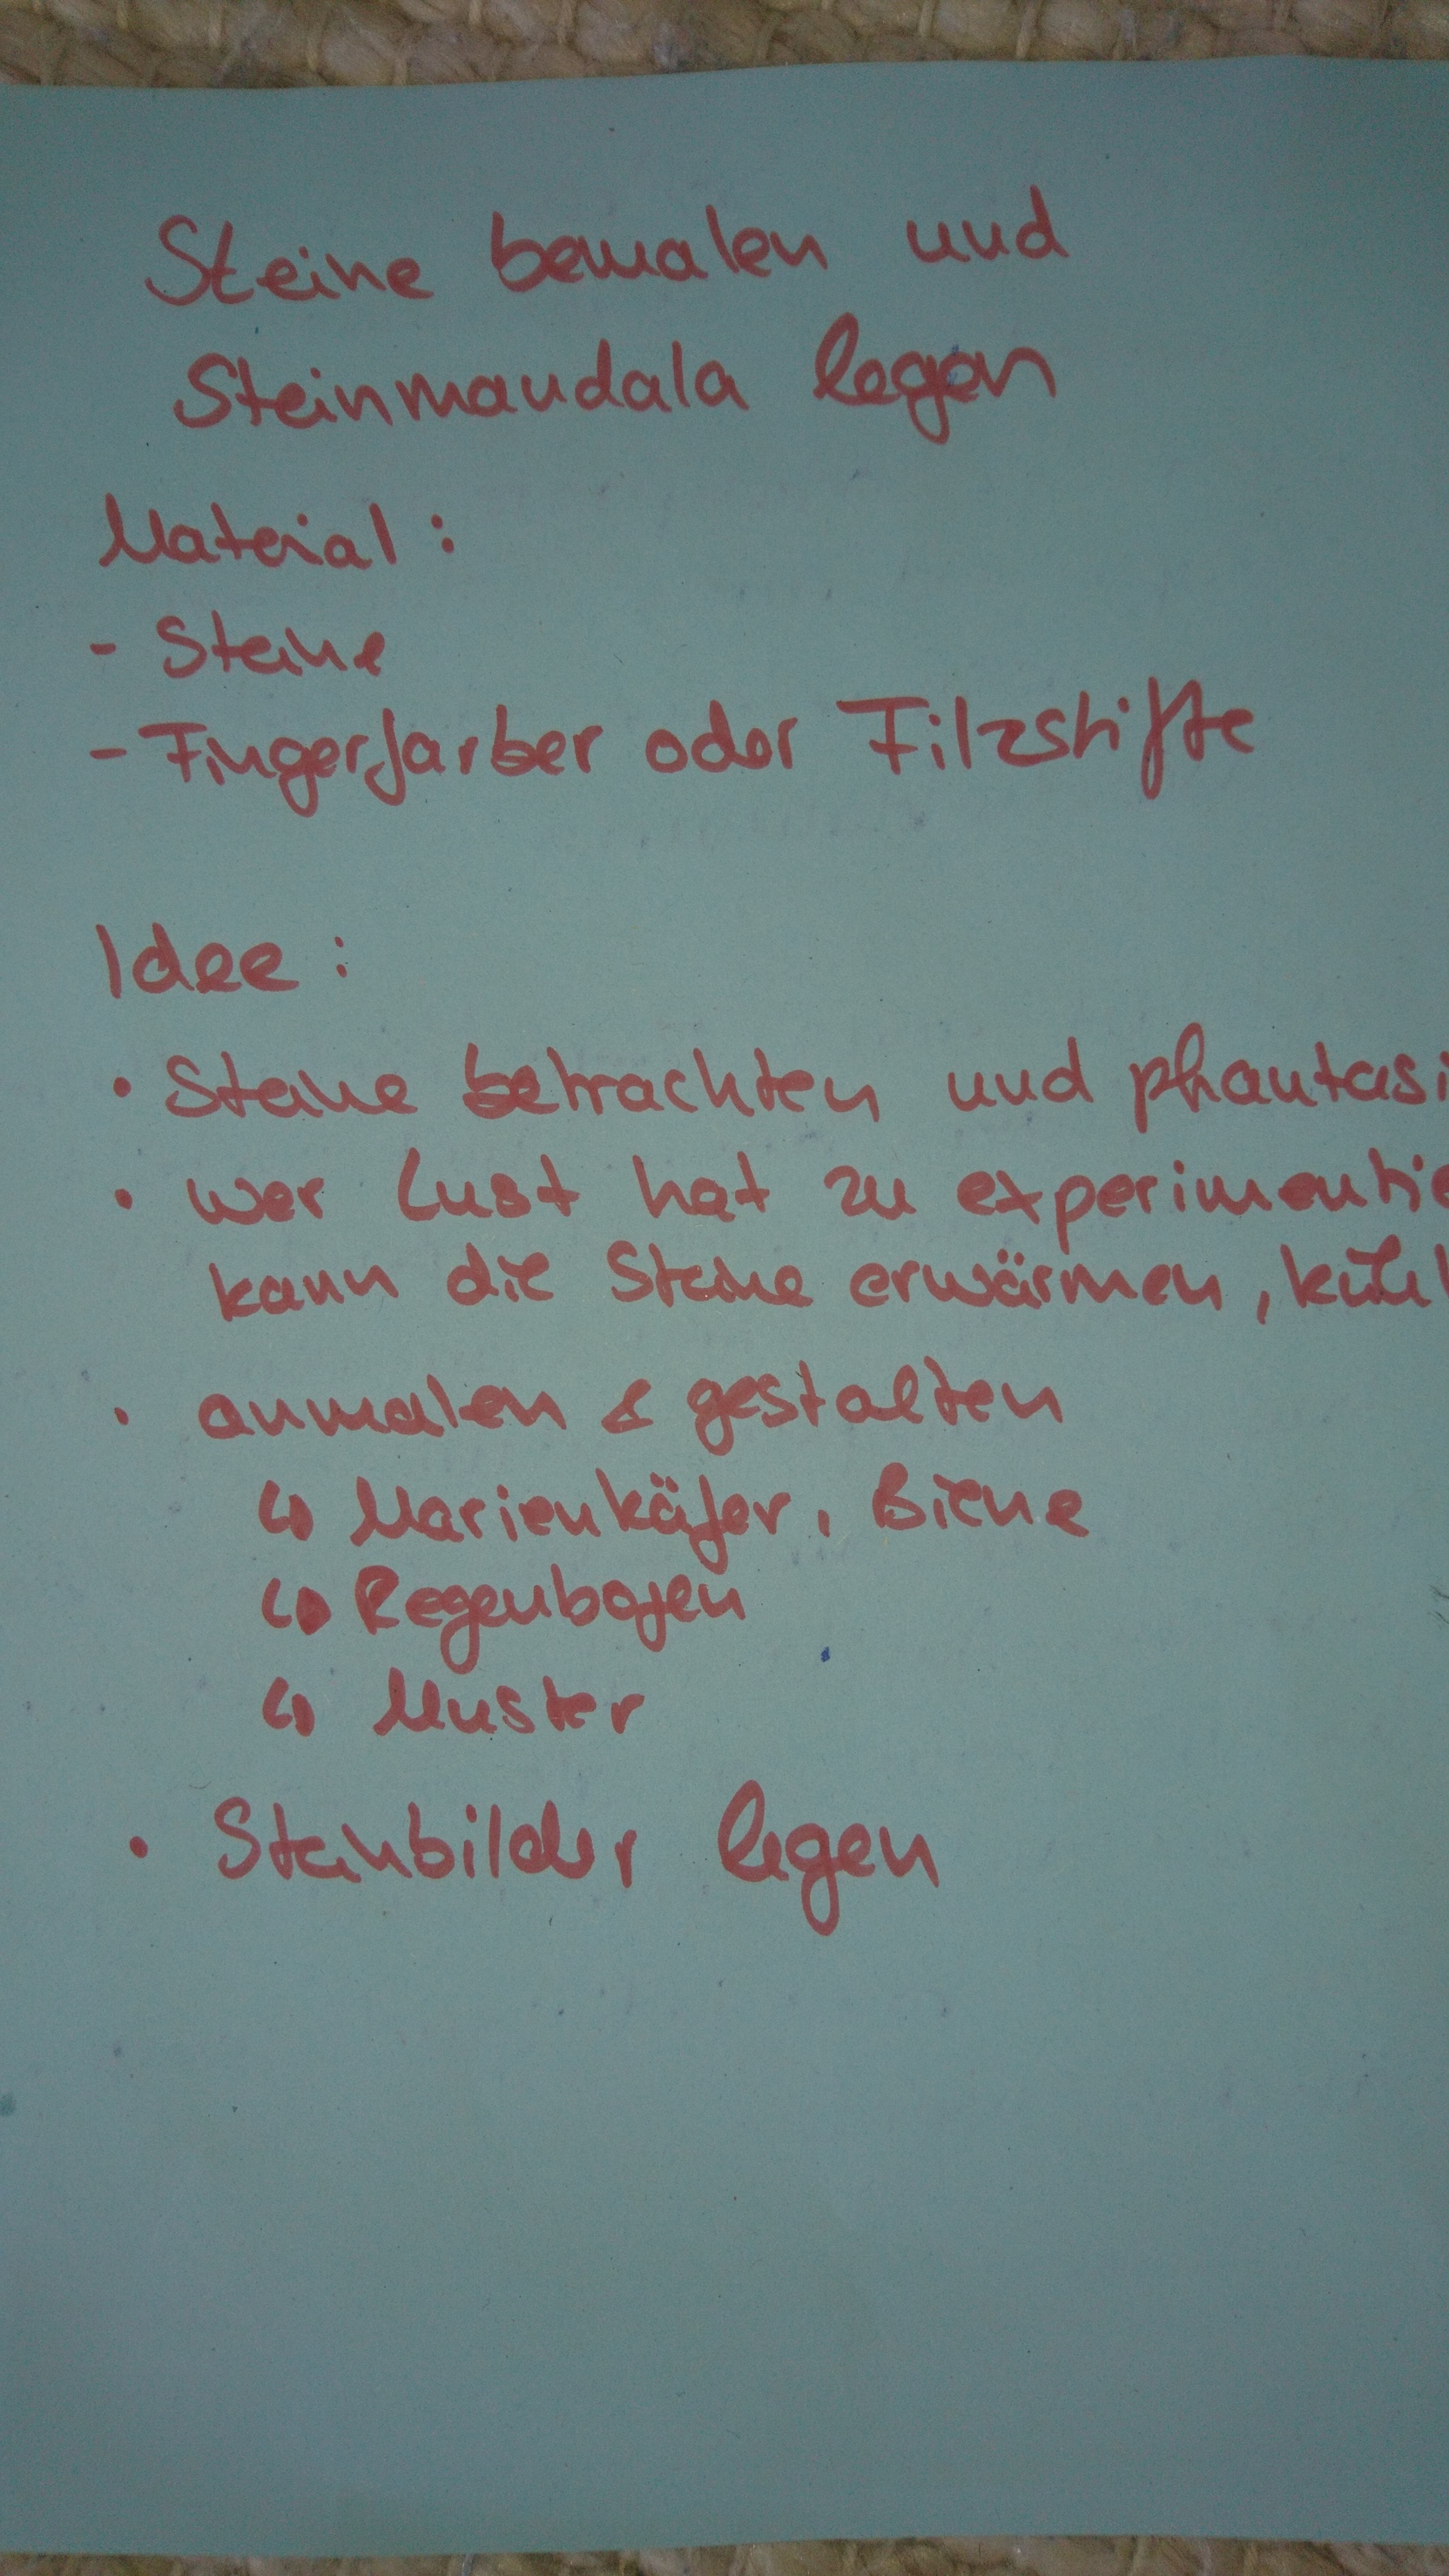 Steine bemalen und
Steinmandala legen
Material:
- Steine
- Fingerfarben oder Filzstifte
Idee:
• Steine betrachten und phantasi
• wer Lust hat zu experimentie
kann die Steine erwärmen, kühl
• anmalen & gestalten
↳ Marienkäfer, Biene
↳ Regenbogen
↳ Muster
• Steinbilder legen